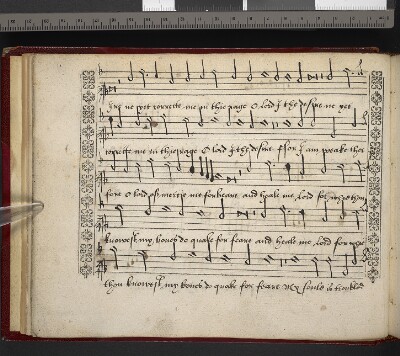 ne yet correcte me in thie rage O lord I the desyre ne yet
correcte me in thie rage O lord I the desyre. ffor I am weake ther
fore O lord of mercie me forbeare and heale me lord for why thou
knowest my bones do quake for feare and heale me lord for why
thou knowest my bones do quake for feare My soule is trowbled